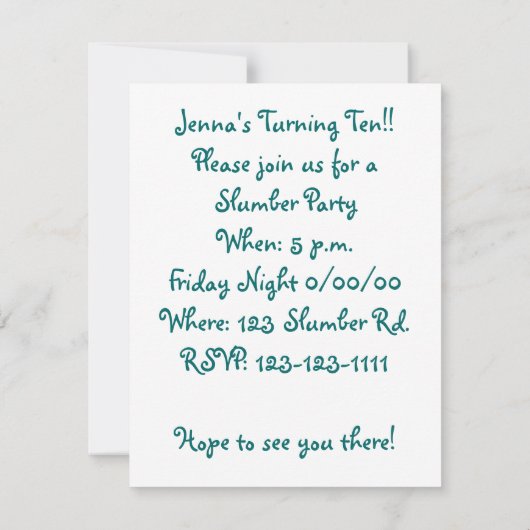 Jenna's Turning Ten!!
Please join us for a
Slumber Party
When: 5 p.m.
Friday Night 0/00/00
Where: 123 Slumber Rd.
RSVP: 123-123-1111
Hope to see you there!